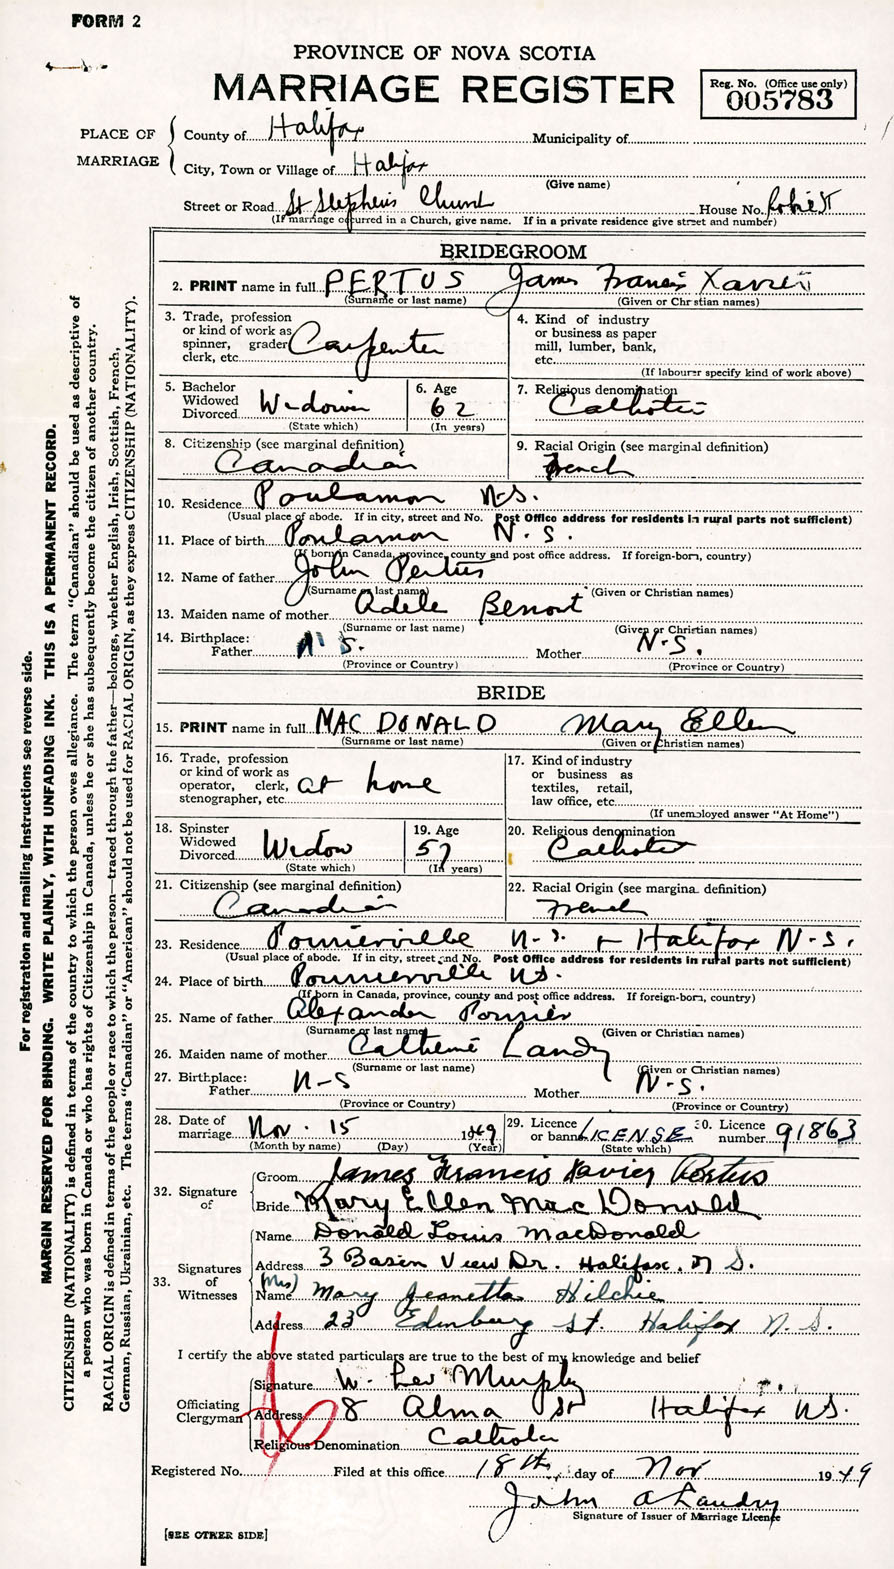 FORM 2
PROVINCE OF NOVA SCOTIA
MARRIAGE REGISTER
Reg. No. (Office use only)
005783
PLACE OF MARRIAGE
County of Halifax Municipality of
City, Town or Village of Halifax
(Give name)
Street or Road St Stephens Church House No. Robie St
(If marriage occurred in a Church, give name. If in a private residence give street and number)
BRIDEGROOM
2. PRINT name in full PERTUS James Francis Xavier
(Surname or last name) (Given or Christian names)
3. Trade, profession or kind of work as spinner, grader clerk, etc. Carpenter
4. Kind of industry or business as paper mill, lumber, bank, etc.
(If labourer specify kind of work above)
5. Bachelor Widowed Divorced Widower
(State which)
6. Age 62
(In years)
7. Religious denomination Catholic
8. Citizenship (see marginal definition) Canadian
9. Racial Origin (see marginal definition) French
10. Residence Poulamon N.S.
(Usual place of abode. If in city, street and No. Post Office address for residents in rural parts not sufficient)
11. Place of birth Poulamon N.S.
(If born in Canada, province, county and post office address. If foreign-born, country)
12. Name of father John Pertus
(Surname or last name) (Given or Christian names)
13. Maiden name of mother Adele Benoit
(Surname or last name) (Given or Christian names)
14. Birthplace: Father N.S. Mother N.S.
(Province or Country) (Province or Country)
BRIDE
15. PRINT name in full MAC DONALD Mary Ellen
(Surname or last name) (Given or Christian names)
16. Trade, profession or kind of work as operator, clerk, stenographer, etc. at home
17. Kind of industry or business as textiles, retail, law office, etc.
(If unemployed answer "At Home")
18. Spinster Widowed Divorced Widow
(State which)
19. Age 57
(In years)
20. Religious denomination Catholic
21. Citizenship (see marginal definition) Canadian
22. Racial Origin (see marginal definition) French
23. Residence Poirierville N.S. + Halifax N.S.
(Usual place of abode. If in city, street and No. Post Office address for residents in rural parts not sufficient)
24. Place of birth Poirierville NS.
(If born in Canada, province, county and post office address. If foreign-born, country)
25. Name of father Alexander Poirier
(Surname or last name) (Given or Christian names)
26. Maiden name of mother Catherine Landry
(Surname or last name) (Given or Christian names)
27. Birthplace: Father N-S Mother N.S.
(Province or Country) (Province or Country)
28. Date of marriage Nov. 15 1949
(Month by name) (Day) (Year)
29. Licence or banns LICENSE
(State which)
30. Licence number 91863
32. Signature of
Groom James Francis Xavier Pertus
Bride Mary Ellen MacDonald
33. Signatures of Witnesses
Name Donald Louis MacDonald
Address 3 Basin View Dr. Halifax, N S.
(Mrs) Name Mary Jeanetta Hilchie
Address 23 Edinburg St. Halifax N.S.
I certify the above stated particulars are true to the best of my knowledge and belief
Officiating Clergyman
Signature W. Leo Murphy
Address 8 Alma St Halifax NS.
Religious Denomination Catholic
Registered No. Filed at this office 18th day of Nov 1949
John A Landry
Signature of Issuer of Marriage Licence
[SEE OTHER SIDE]
For registration and mailing instructions see reverse side.
MARGIN RESERVED FOR BINDING. WRITE PLAINLY, WITH UNFADING INK. THIS IS A PERMANENT RECORD.
CITIZENSHIP (NATIONALITY) is defined in terms of the country to which the person owes allegiance. The term "Canadian" should be used as descriptive of
a person who was born in Canada or who has rights of Citizenship in Canada, unless he or she has subsequently become the citizen of another country.
RACIAL ORIGIN is defined in terms of the people or race to which the person—traced through the father—belongs, whether English, Irish, Scottish, French,
German, Russian, Ukrainian, etc. The terms "Canadian" or "American" should not be used for RACIAL ORIGIN, as they express CITIZENSHIP (NATIONALITY).